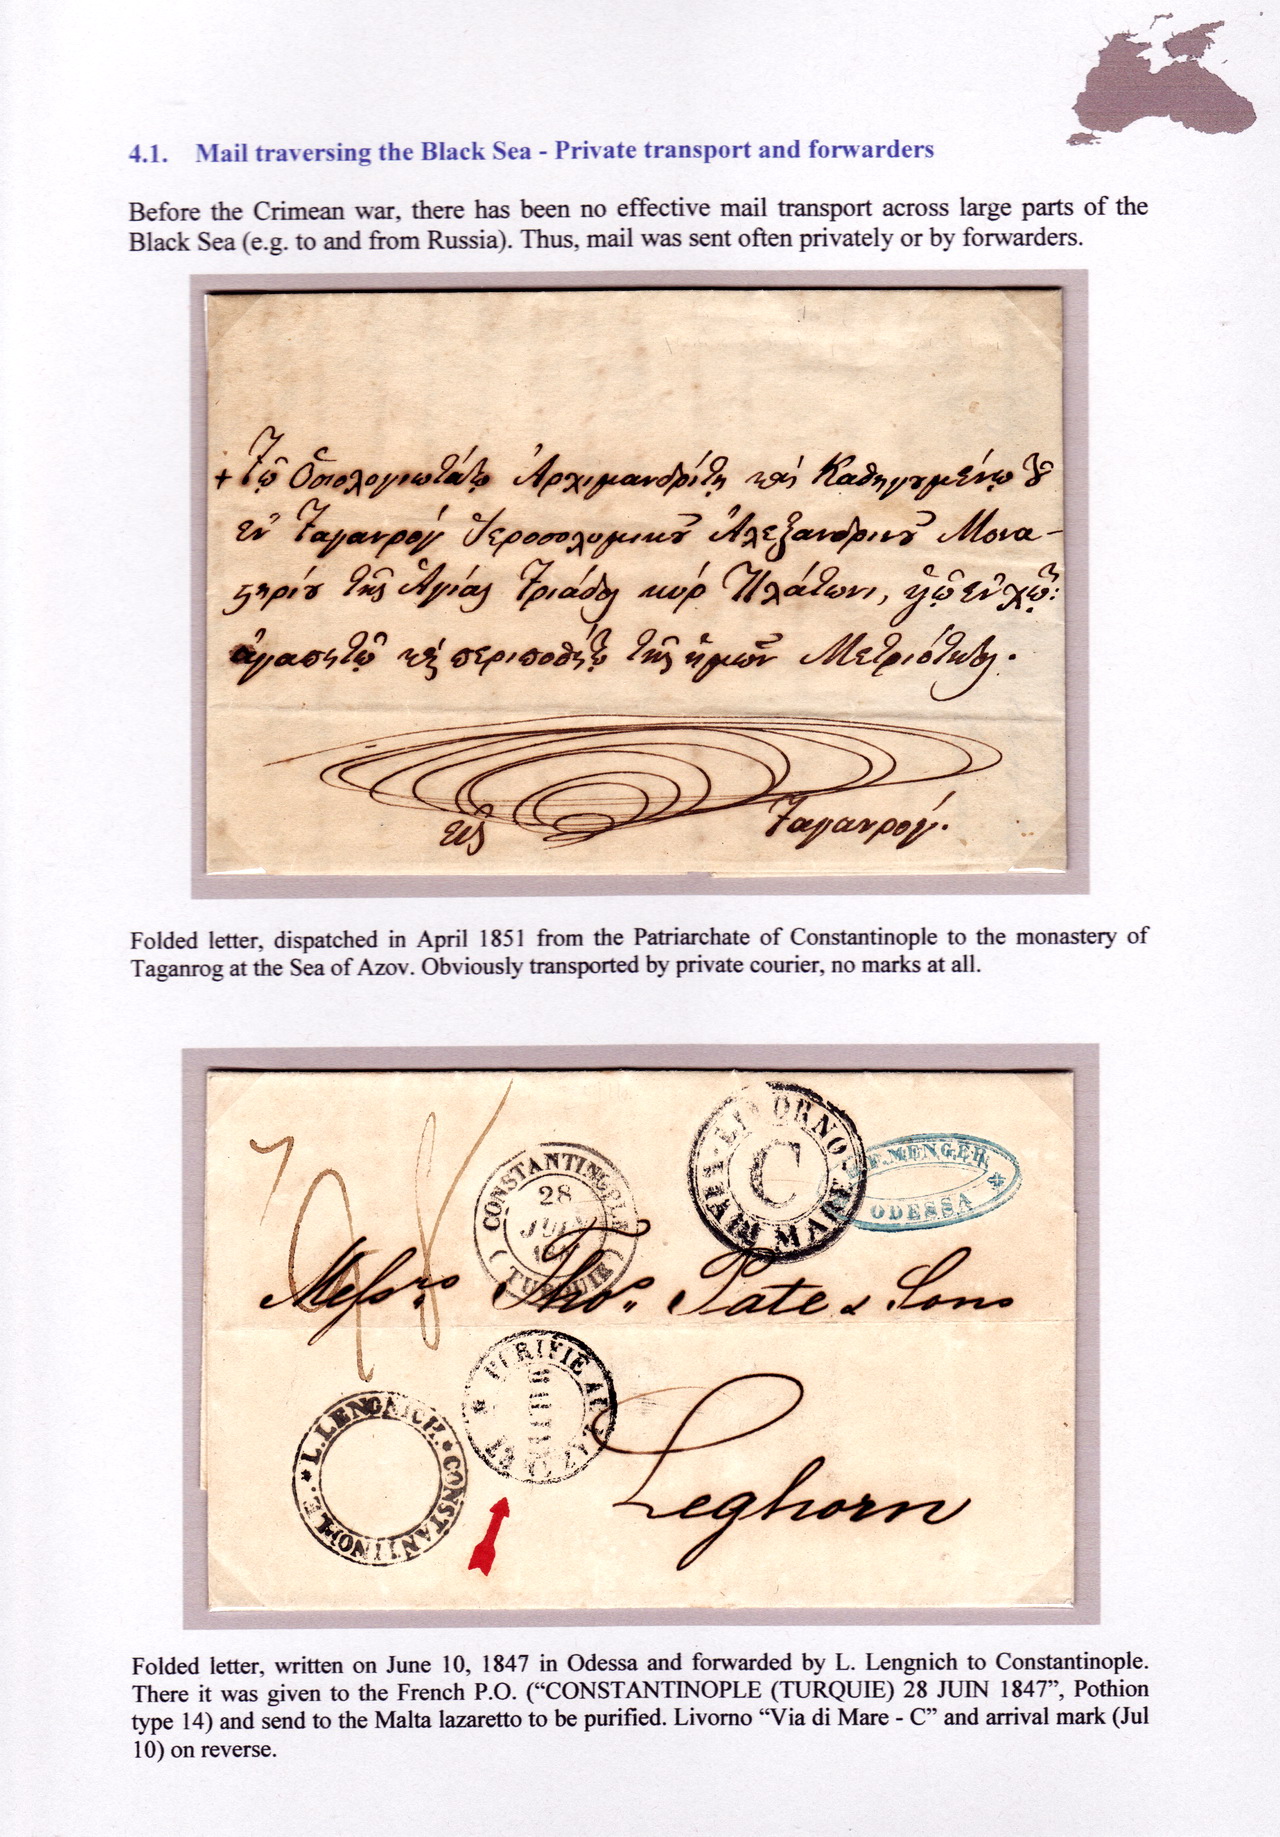 4.1. Mail traversing the Black Sea - Private transport and forwarders
Before the Crimean war, there has been no effective mail transport across large parts of the
Black Sea (e.g. to and from Russia). Thus, mail was sent often privately or by forwarders.
+ Τῷ Ὁσιολογιωτάτῳ Ἀρχιμανδρίτῃ καὶ Καθηγουμένῳ τοῦ
ἐν Ταγανρὸγ Ἱεροσολυμικοῦ Ἀλεξανδρινοῦ Μονα-
στηρίου τῆς Ἁγίας Τριάδος κυρ Πλάτωνι,
ἀγαπητῷ καὶ περιποθήτῳ τῆς ἡμῶν Μετριότητος.
εἰς Ταγανρόγ.
Folded letter, dispatched in April 1851 from the Patriarchate of Constantinople to the monastery of
Taganrog at the Sea of Azov. Obviously transported by private courier, no marks at all.
LIVORNO
C
VIA DI MARE
F. MENGER
ODESSA
CONSTANTINOPLE
28
JUIN
(TURQUIE)
Messrs. Thos. Pate & Sons
PURIFIÉ AU LAZARET
MALTE
L. LENGNICH. * CONSTANTINOPLE. *
Leghorn
Folded letter, written on June 10, 1847 in Odessa and forwarded by L. Lengnich to Constantinople.
There it was given to the French P.O. (“CONSTANTINOPLE (TURQUIE) 28 JUIN 1847”, Pothion
type 14) and send to the Malta lazaretto to be purified. Livorno “Via di Mare - C” and arrival mark (Jul
10) on reverse.